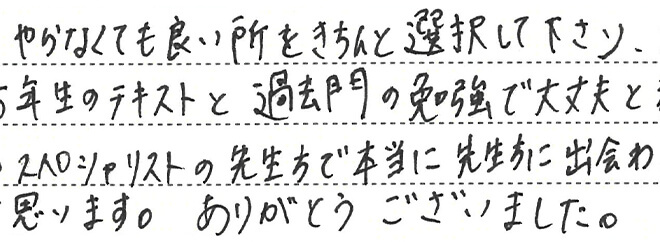 やらなくても良い所をきちんと選択して下さり、
年生のテキストと過去問の勉強で大丈夫と
スペシャリストの先生方で本当に先生方に出会わ
思います。ありがとうございました。